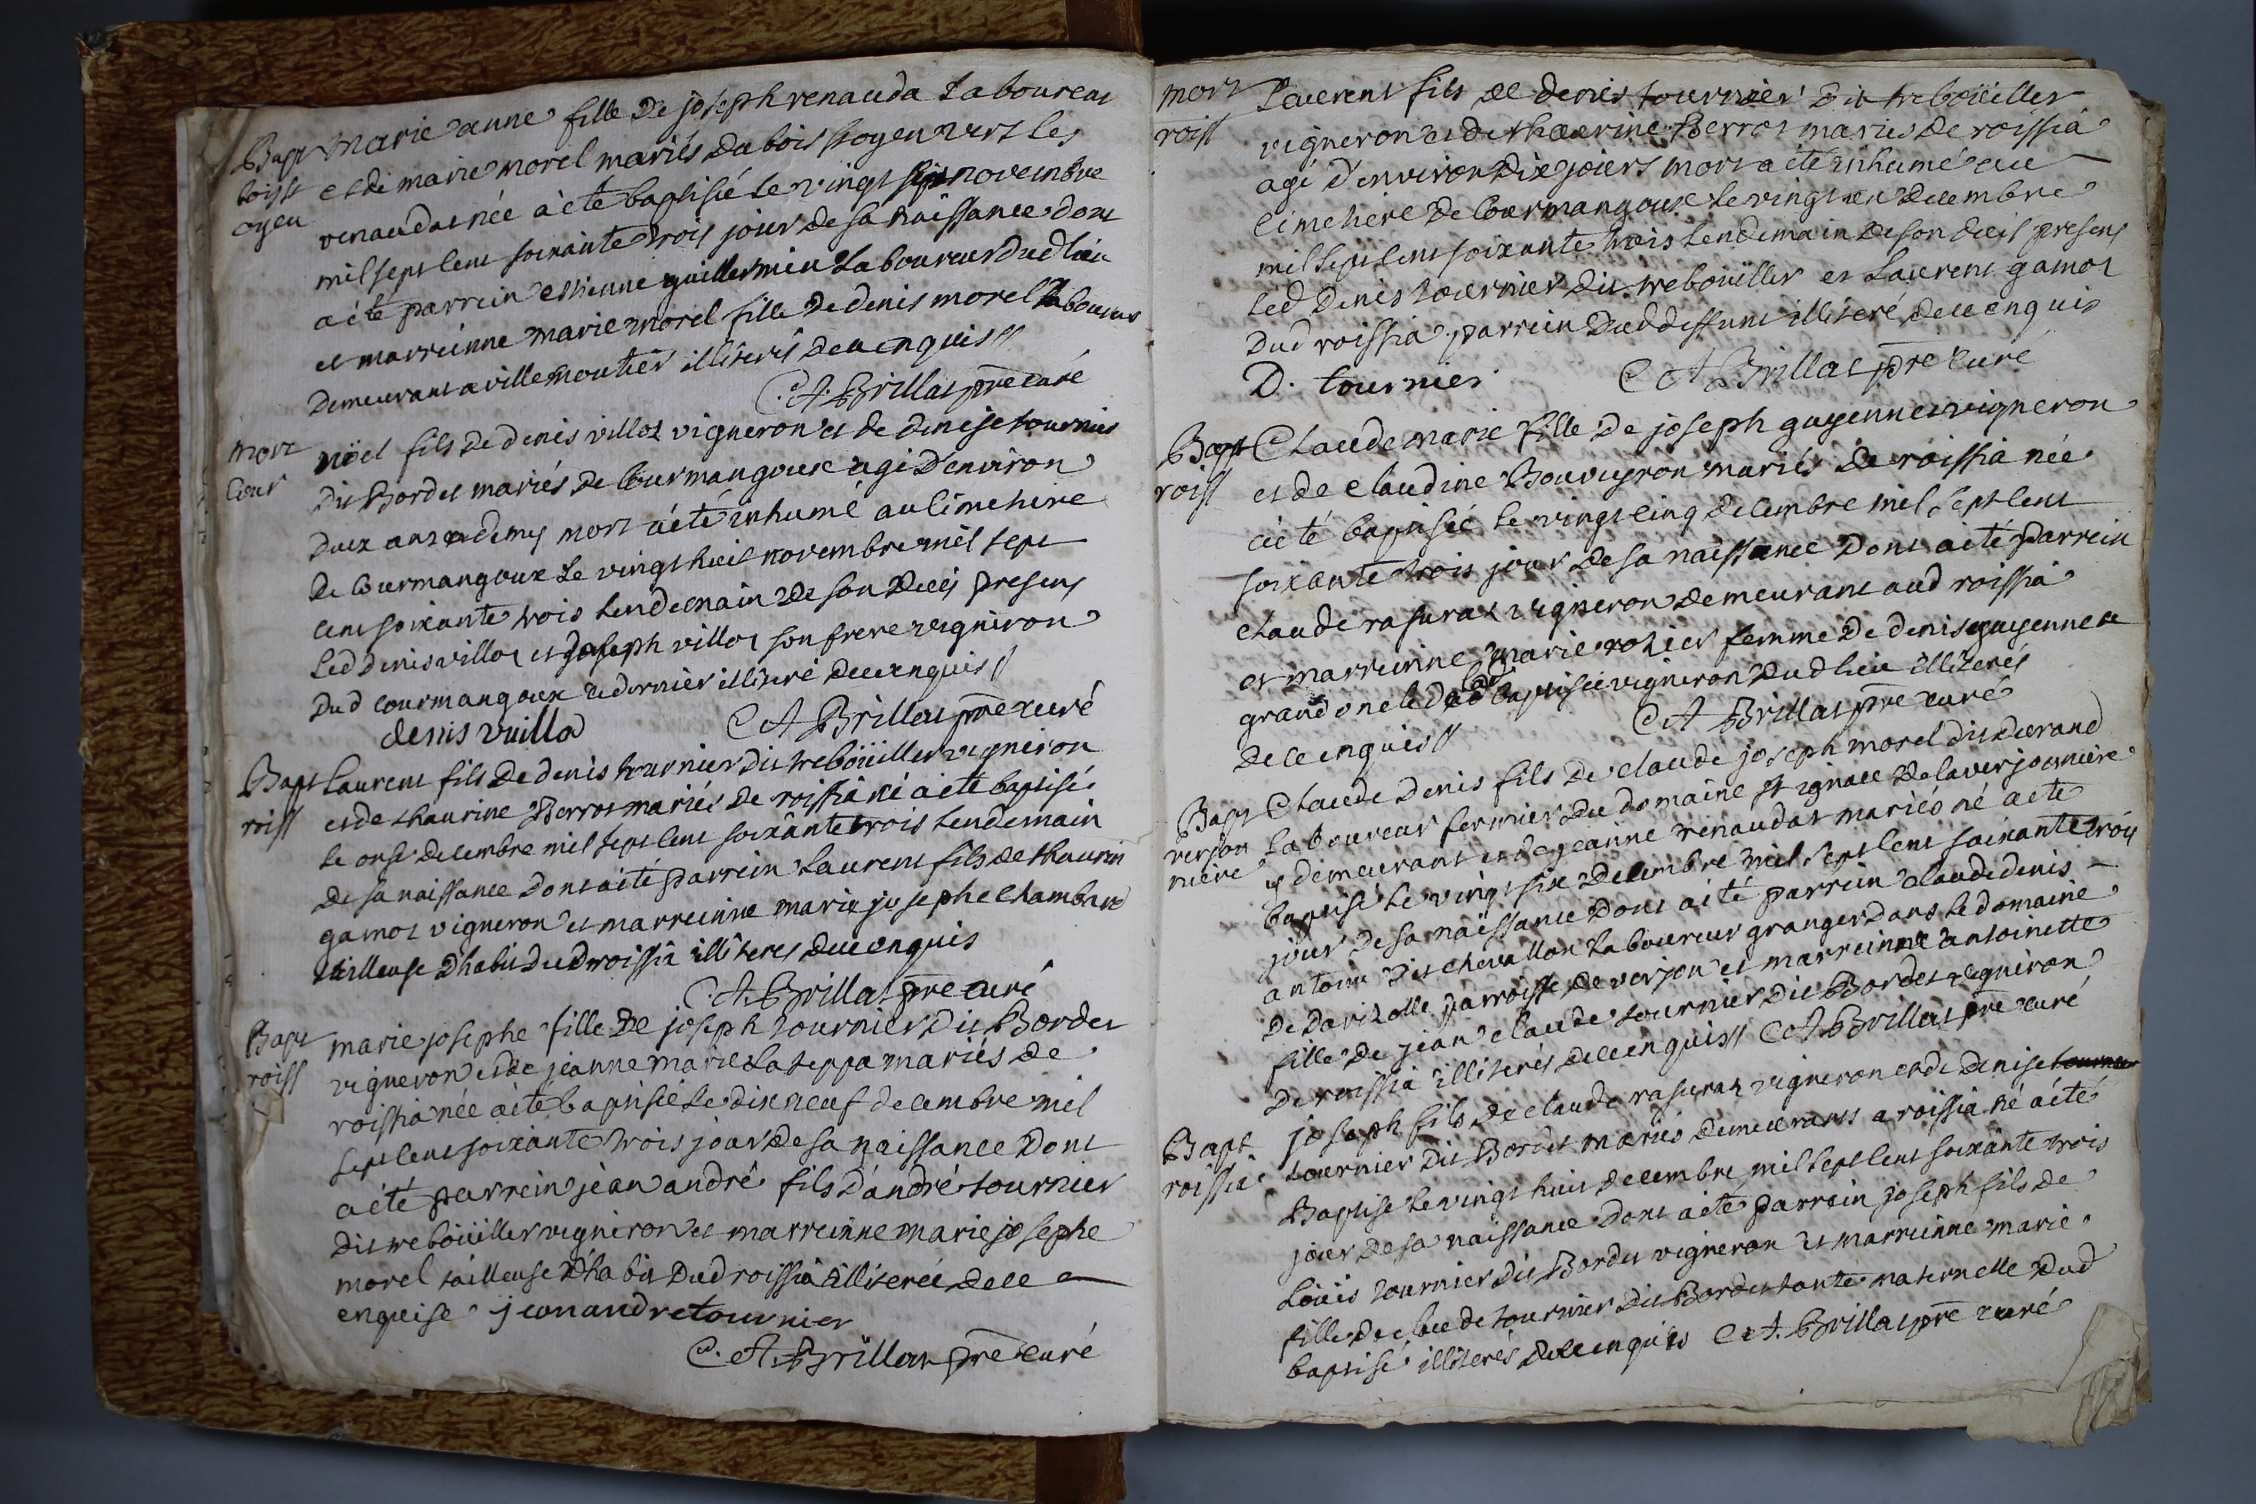 Bapt marie anne fille de joseph renauda Laboureur
boisst et de marie morel mariés du bois st oyen vers les
oyeu renaudat née a été baptisée le vingt sept novembre
mil sept cent soixante trois jour de sa naissance dont
a été parrein etienne guillermin Laboureur dud lieu
et marreinne marie morel fille de denis morel Laboureur
demeurant a villemoutier illiterés de ce enquis //
C. A. Brillat pre curé
mort noël fils de denis villot vigneron et de denise tournier
Cour dit Bordet mariés de Courmangoux agé d'environ
deux ans et demy mort a été inhumé au cimetiere
de Courmangoux Le vingt huit novembre mil sept
cent soixante trois Lendemain de son deces presens
Led denis villot et joseph villot son frere vigneron
dud Courmangoux ce dernier illiteré de ce enquis //
denis vuillo C A Brillat pre curé
Bapt Laurent fils de denis tournier dit trebouiller vigneron
roiss et de thaurine Perrot mariés de roissia né a été baptisé
le onse decembre mil sept cent soixante trois Lendemain
de sa naissance dont a été parrein Laurent fils de thaurin
gamot vigneron et marreinne marie josephe Chambard
tailleuse d'habit dud roissia illiteres de ce enquis
C. A. Brillat pre curé
Bapt marie josephe fille de joseph tournier dit Bordet
roiss vigneron et de jeanne marie La teppa mariés de
roissia née a été baptisée Le dix neuf decembre mil
sept cent soixante trois jour de sa naissance dont
a été parrein jean andré fils d'andré tournier
dit trebouiller vigneron et marreinne marie josephe
morel tailleuse d'habit dud roissia illiterée de ce
enquise jean andre tournier
C. A. Brillat pre curé
mort Laurent fils de denis tournier dit trebouiller
roiss vigneron et de thaurine Perrot mariés de roissia
agé d'environ dix jours mort a été inhumé au
Cimetiere de Courmangoux Le vingt un decembre
mil sept cent soixante trois Lendemain de son deces presens
Led denis tournier dit trebouiller et Laurent gamot
dud roissia parrein dud deffunt illiteré de ce enquis
D. tournier C A Brillat pre curé
Bapt Claude marie fille de joseph guyennet vigneron
roiss et de claudine Bouveyron mariés de roissia née
a été baptisée le vingt cinq decembre mil sept cent
soixante trois jour de sa naissance dont a été parrein
claude rasurat vigneron demeurant aud roissia
et marreinne marie rozier femme de denis guyennet
grand oncle de lad baptisée vigneron dud lieu illiterés
de ce enquis // C A Brillat pre curé
Bapt Claude denis fils de claude joseph morel dit durand
verjon Laboureur fermier du domaine st ignace de la verjonniere
niere y demeurant et de jeanne renaudat mariés né a été
baptisé Le vingt six decembre mil sept cent soixante trois
jour de sa naissance dont a été parrein claude denis
antoin dit chevallon Laboureur granger dans Le domaine
de parroisse de verjon et marreinne antoinette
fille de jean claude tournier dit Bordet vigneron
de roissia illiterés de ce enquis // C A Brillat pre curé
Bapt joseph fils de claude rasurat vigneron et de denise tournier
roissia tournier dit Bordet mariés demeurants a roissia né a été
Baptisé Le vingt huit decembre mil sept cent soixante trois
jour de sa naissance dont a été parrein joseph fils de
Loüis tournier dit Bordet vigneron et marreinne marie
fille de claude tournier dit Bordet tante maternelle dud
baptisé illiterés de ce enquis C A. Brillat pre curé